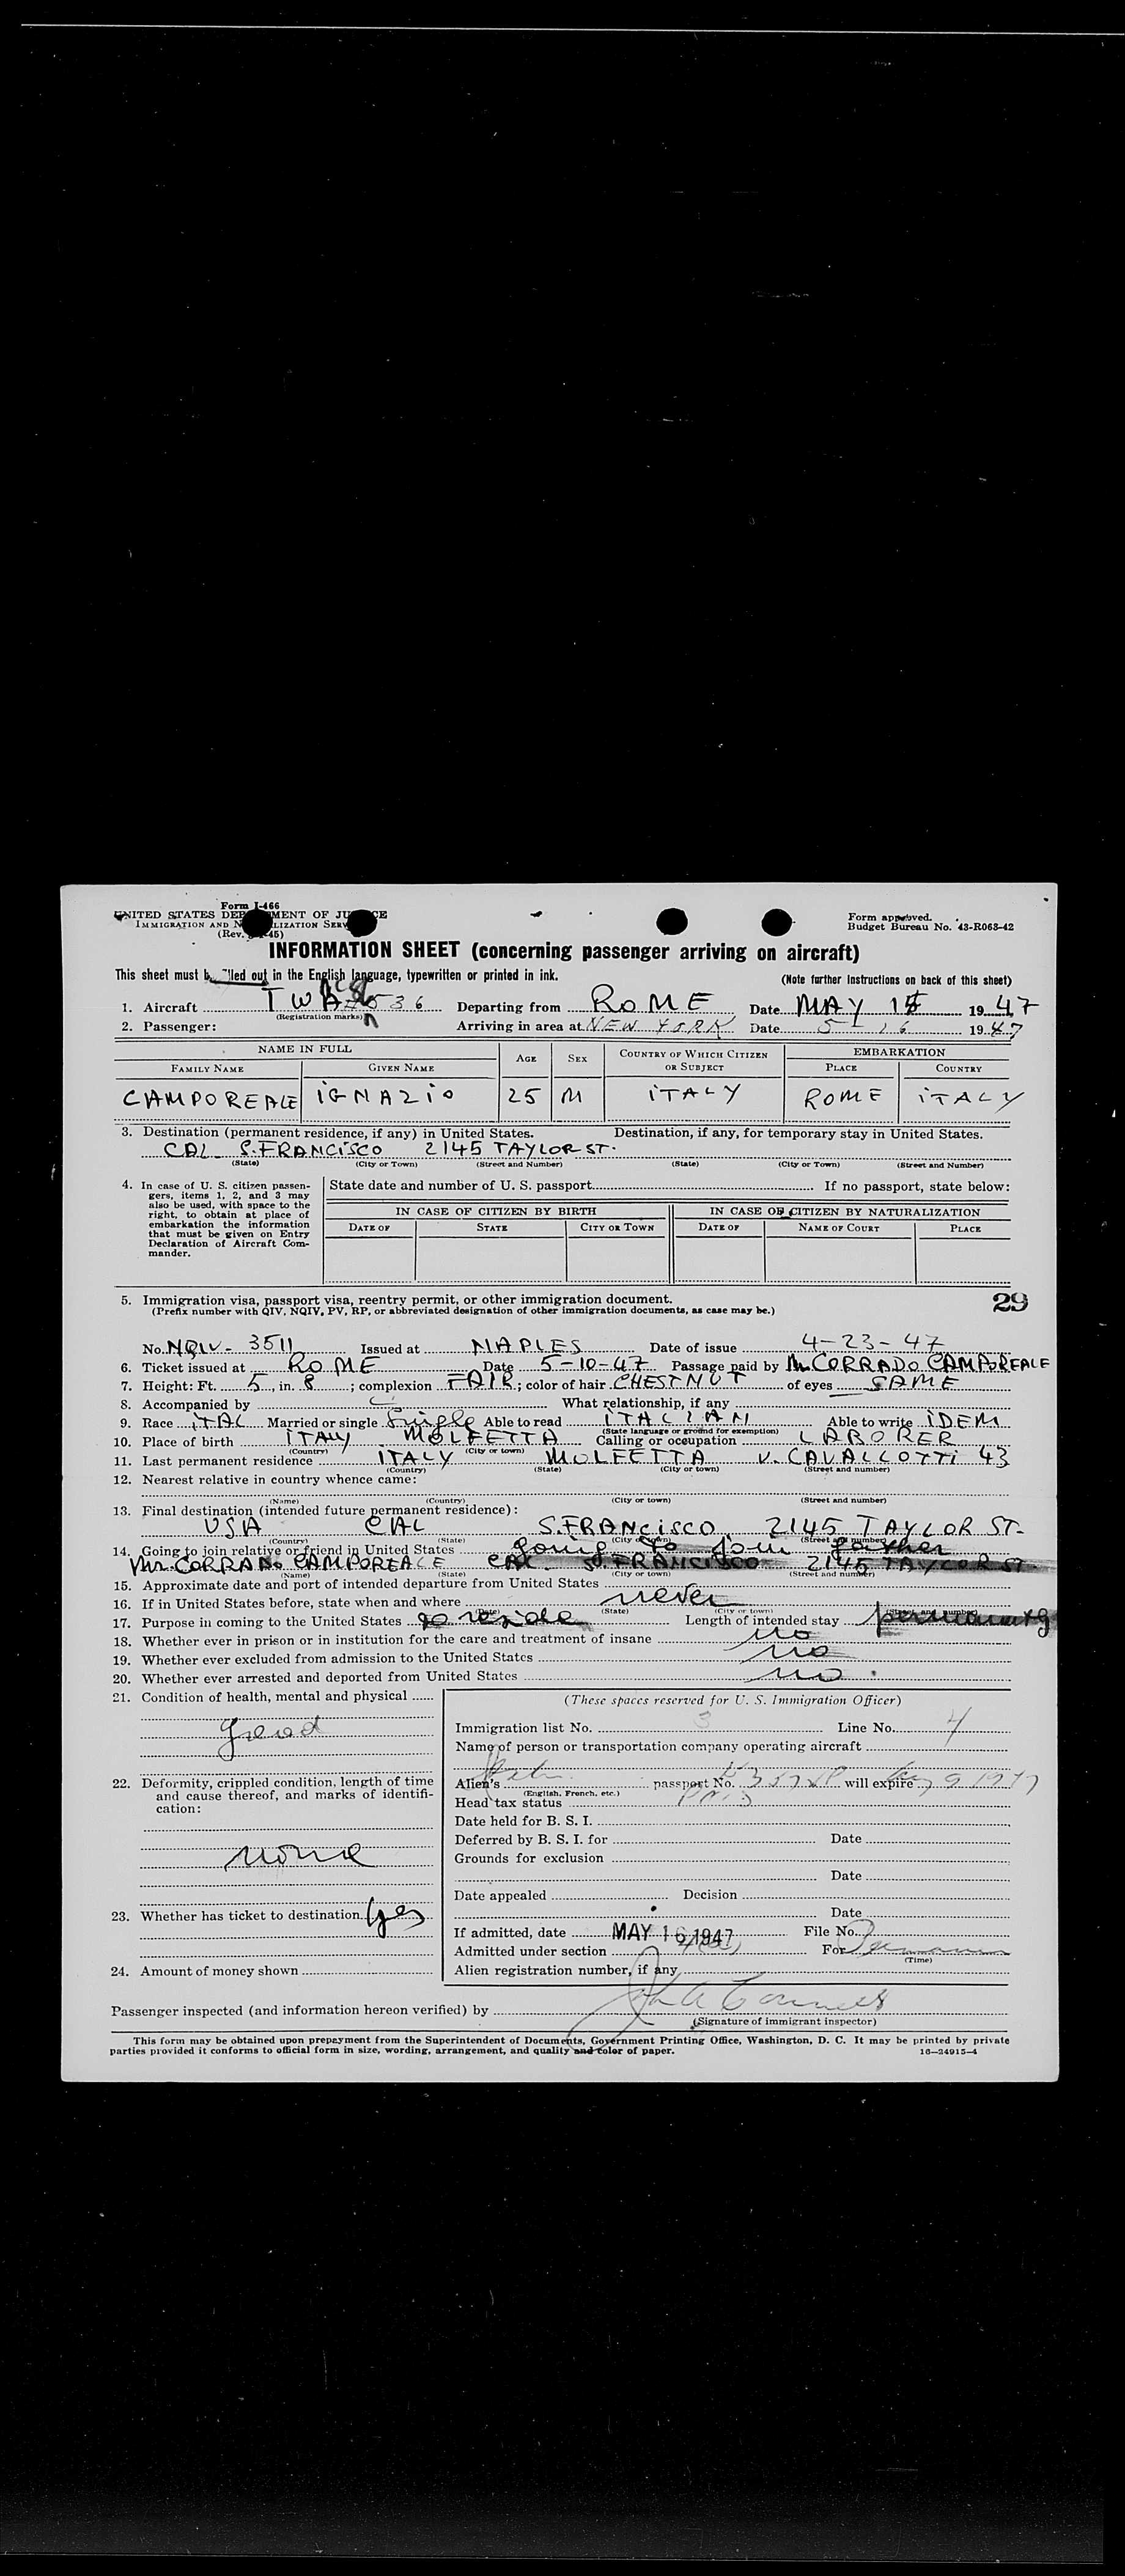 Form I-466
UNITED STATES DEPARTMENT OF JUSTICE
IMMIGRATION AND NATURALIZATION SERVICE
(Rev. 45)
Form approved.
Budget Bureau No. 43-R063-42
INFORMATION SHEET (concerning passenger arriving on aircraft)
This sheet must be filled out in the English language, typewritten or printed in ink.
(Note further instructions on back of this sheet)
1. Aircraft TWA 536 Departing from ROME Date MAY 15 1947
(Registration marks)
2. Passenger: Arriving in area at NEW YORK Date 5-16 1947
NAME IN FULL AGE SEX COUNTRY OF WHICH CITIZEN OR SUBJECT EMBARKATION
FAMILY NAME GIVEN NAME PLACE COUNTRY
CAMPOREALE IGNAZIO 25 M ITALY ROME ITALY
3. Destination (permanent residence, if any) in United States. Destination, if any, for temporary stay in United States.
CAL S.FRANCISCO 2145 TAYLOR ST.
(State) (City or Town) (Street and Number) (State) (City or Town) (Street and Number)
4. In case of U. S. citizen passen-
gers, items 1, 2, and 3 may
also be used, with space to the
right, to obtain at place of
embarkation the information
that must be given on Entry
Declaration of Aircraft Com-
mander.
State date and number of U. S. passport If no passport, state below:
IN CASE OF CITIZEN BY BIRTH IN CASE OF CITIZEN BY NATURALIZATION
DATE OF STATE CITY OR TOWN DATE OF NAME OF COURT PLACE
5. Immigration visa, passport visa, reentry permit, or other immigration document.
(Prefix number with QIV, NQIV, PV, RP, or abbreviated designation of other immigration documents, as case may be.)
29
No. NQIV- 3511 Issued at NAPLES Date of issue 4-23-47
6. Ticket issued at ROME Date 5-10-47 Passage paid by Mr CORRADO CAMPOREALE
7. Height: Ft. 5, in. 8; complexion FAIR; color of hair CHESTNUT of eyes SAME
8. Accompanied by What relationship, if any
9. Race ITAL Married or single Single Able to read ITALIAN Able to write IDEM
(State language or ground for exemption)
10. Place of birth ITALY MOLFETTA Calling or occupation LABORER
(Country) (City or town)
11. Last permanent residence ITALY MOLFETTA V. CAVALLOTTI 43
(Country) (State) (City or town) (Street and number)
12. Nearest relative in country whence came:
(Name) (Country) (City or town) (Street and number)
13. Final destination (intended future permanent residence):
USA CAL S.FRANCISCO 2145 TAYLOR ST.
(Country) (State) (City or town) (Street and number)
14. Going to join relative or friend in United States going to join father
Mr. CORRADO CAMPOREALE CAL S.FRANCISCO 2145 TAYLOR ST
(Name) (State) (City or town) (Street and number)
15. Approximate date and port of intended departure from United States
16. If in United States before, state when and where never
(Date) (State) (City or town) (Street and number)
17. Purpose in coming to the United States to reside Length of intended stay permanently
18. Whether ever in prison or in institution for the care and treatment of insane no
19. Whether ever excluded from admission to the United States no
20. Whether ever arrested and deported from United States no
21. Condition of health, mental and physical
good
22. Deformity, crippled condition, length of time
and cause thereof, and marks of identifi-
cation:
none
23. Whether has ticket to destination yes
24. Amount of money shown
(These spaces reserved for U. S. Immigration Officer)
Immigration list No. 3 Line No. 4
Name of person or transportation company operating aircraft
Alien's passport No. will expire
(English, French, etc.)
Head tax status
Date held for B. S. I.
Deferred by B. S. I. for Date
Grounds for exclusion
Date
Date appealed Decision
Date
If admitted, date MAY 16 1947 File No.
Admitted under section For
(Time)
Alien registration number, if any
Passenger inspected (and information hereon verified) by
(Signature of immigrant inspector)
This form may be obtained upon prepayment from the Superintendent of Documents, Government Printing Office, Washington, D. C. It may be printed by private
parties provided it conforms to official form in size, wording, arrangement, and quality and color of paper.
16—24915-4